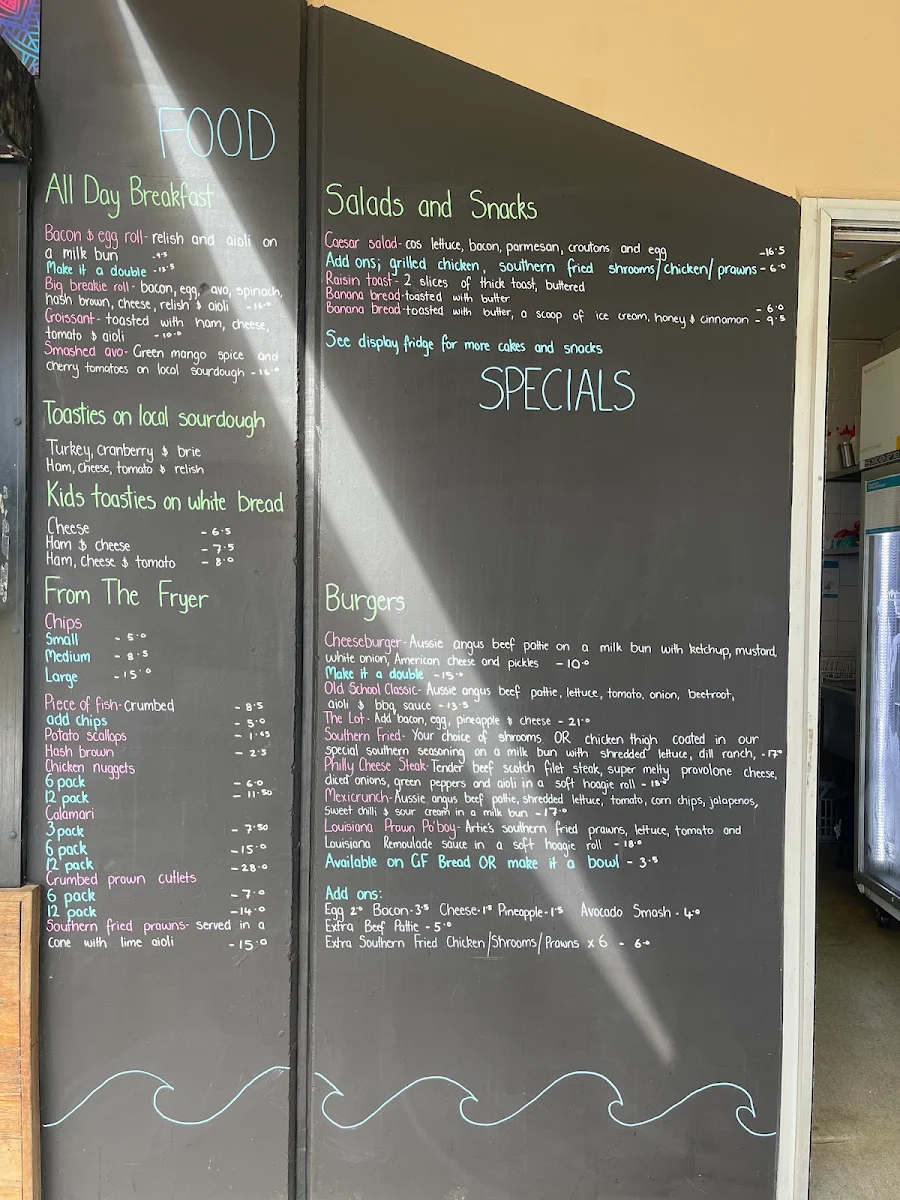 FOOD
All Day Breakfast
Bacon $ egg roll- relish and aioli on
a milk bun
Make it a double - 13.5
Big breakie roll - bacon, egg, avo, spinach,
hash brown, cheese, relish $ aioli
Croissant- toasted with ham, cheese,
tomato $ aioli - 10.0
Smashed avo- Green mango spice and
cherry tomatoes on local sourdough
Toasties on local sourdough
Turkey, cranberry $ brie
Ham, cheese, tomato $ relish
Kids toasties on white bread
Cheese - 6.5
Ham $ cheese - 7.5
Ham, cheese $ tomato - 8.0
From The Fryer
Chips
Small - 5.0
Medium - 8.5
Large - 15.0
Piece of fish- crumbed - 8.5
add chips - 5.0
Potato scallops
Hash brown - 2.5
Chicken nuggets
6 pack - 6.0
12 pack - 11.50
Calamari
3 pack - 7.50
6 pack - 15.0
12 pack - 28.0
Crumbed prawn cutlets
6 pack - 7.0
12 pack - 14.0
Southern fried prawns- served in a
cone with lime aioli - 15.0
Salads and Snacks
Caesar salad- cos lettuce, bacon, parmesan, croutons and egg - 16.5
Add ons; grilled chicken, southern fried shrooms/chicken/prawns - 6.0
Raisin toast- 2 slices of thick toast, buttered
Banana bread-toasted with butter - 6.0
Banana bread-toasted with butter, a scoop of ice cream, honey $ cinnamon - 9.5
See display fridge for more cakes and snacks
SPECIALS
Burgers
Cheeseburger- Aussie angus beef pattie on a milk bun with ketchup, mustard,
white onion, American cheese and pickles - 10.0
Make it a double - 15.0
Old School Classic- Aussie angus beef pattie, lettuce, tomato, onion, beetroot,
aioli $ bbq sauce - 13.5
The Lot- Add bacon, egg, pineapple $ cheese - 21.0
Southern Fried- Your choice of shrooms OR chicken thigh coated in our
special southern seasoning on a milk bun with shredded lettuce, dill ranch,
Philly Cheese Steak- Tender beef scotch filet steak, super melty provolone cheese,
diced onions, green peppers and aioli in a soft hoagie roll
Mexicrunch- Aussie angus beef pattie, shredded lettuce, tomato, corn chips, jalapenos,
sweet chilli $ sour cream in a milk bun - 17.0
Louisiana Prawn Po'boy- Artie's southern fried prawns, lettuce, tomato and
Louisiana Remoulade sauce in a soft hoagie roll - 18.0
Available on GF Bread OR make it a bowl - 3.5
Add ons:
Egg 2.0 Bacon - 3.5 Cheese - 1.5 Pineapple - 1.5 Avocado Smash - 4.0
Extra Beef Pattie - 5.0
Extra Southern Fried Chicken/Shrooms/Prawns x 6 - 6.0